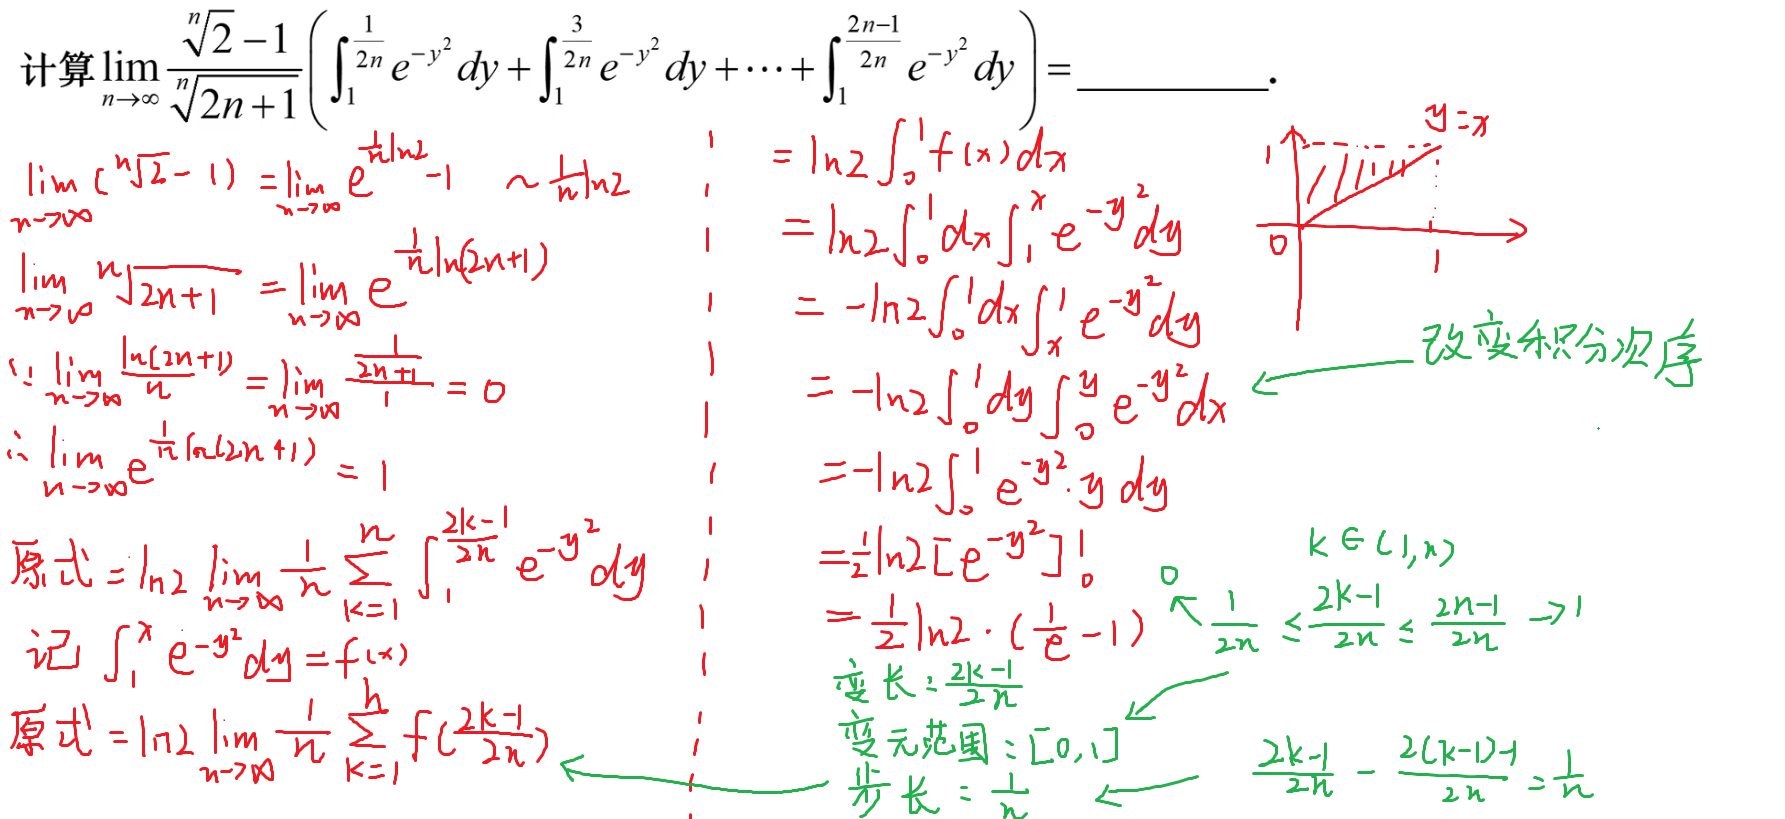 计算 lim_{n→∞} (ⁿ√2 − 1)/(ⁿ√(2n+1)) ( ∫_1^{1/(2n)} e^{−y²} dy + ∫_1^{3/(2n)} e^{−y²} dy + ⋯ + ∫_1^{(2n−1)/(2n)} e^{−y²} dy ) = ________.
lim_{n→∞} (ⁿ√2 − 1) = lim_{n→∞} e^{(1/n)ln2} − 1 ~ (1/n) ln2
lim_{n→∞} ⁿ√(2n+1) = lim_{n→∞} e^{(1/n)ln(2n+1)}
∵ lim_{n→∞} ln(2n+1)/n = lim_{n→∞} (1/(2n+1))/1 = 0
∴ lim_{n→∞} e^{(1/n)ln(2n+1)} = 1
原式 = ln2 lim_{n→∞} (1/n) Σ_{k=1}^{n} ∫_1^{(2k−1)/(2n)} e^{−y²} dy
记 ∫_1^x e^{−y²} dy = f(x)
原式 = ln2 lim_{n→∞} (1/n) Σ_{k=1}^{n} f((2k−1)/(2n))
= ln2 ∫_0^1 f(x) dx
= ln2 ∫_0^1 dx ∫_1^x e^{−y²} dy
= −ln2 ∫_0^1 dx ∫_x^1 e^{−y²} dy
= −ln2 ∫_0^1 dy ∫_0^y e^{−y²} dx
= −ln2 ∫_0^1 e^{−y²}·y dy
= (1/2) ln2 [e^{−y²}]_0^1
= (1/2) ln2 · (1/e − 1)
y=x
1
0
1
改变积分次序
k∈(1,n)
0 ↖ 1/(2n) ≤ (2k−1)/(2n) ≤ (2n−1)/(2n) → 1
变长: (2k−1)/(2n)
变元范围: [0,1]
步长: 1/n
(2k−1)/(2n) − (2(k−1)−1)/(2n) = 1/n